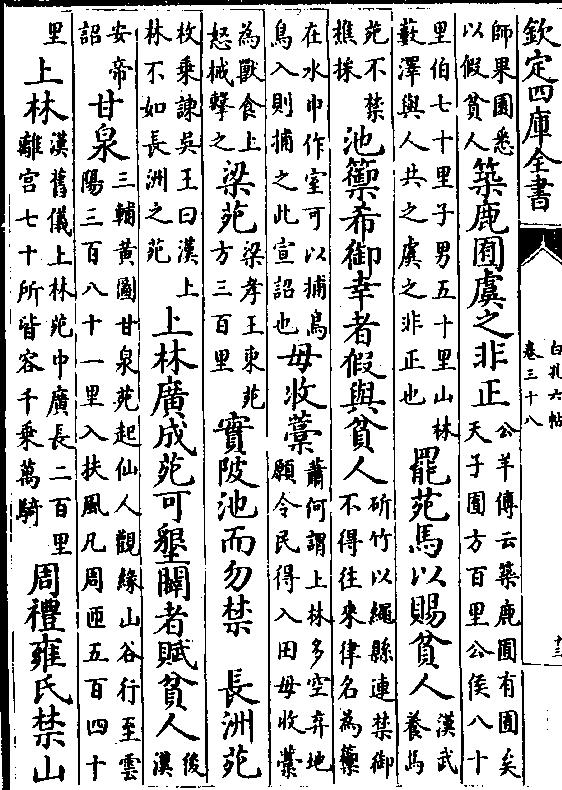 欽定四庫全書
白孔六帖
卷三十八
十三
師果園悉以假貧人築鹿囿虞之非正公羊傳云築鹿囿有囿矣天子囿方百里公侯八十
里伯七十里子男五十里山林藪澤與人共之虞之非正也罷苑馬以賜貧人漢武養馬
苑不禁樵採池籞希御幸者假與貧人斫竹以繩縣連禁御不得往来律名為籞
在水中作室可以捕鳥鳥入則捕之此宣詔也毋收藁蕭何謂上林多空弃地願令民得入田毋收藁
為獸食上怒械繫之梁苑梁孝王東苑方三百里實陂池而勿禁 長洲苑
枚乘諫吳王曰漢上林不如長洲之苑上林廣成苑可墾闢者賦貧人後漢
安帝詔甘泉三輔黃圖甘泉苑起仙人觀緣山谷行至雲陽三百八十一里入扶風凡周匝五百四十
里上林漢舊儀上林苑中廣長二百里離宮七十所皆容千乘萬騎周禮雍氏禁山